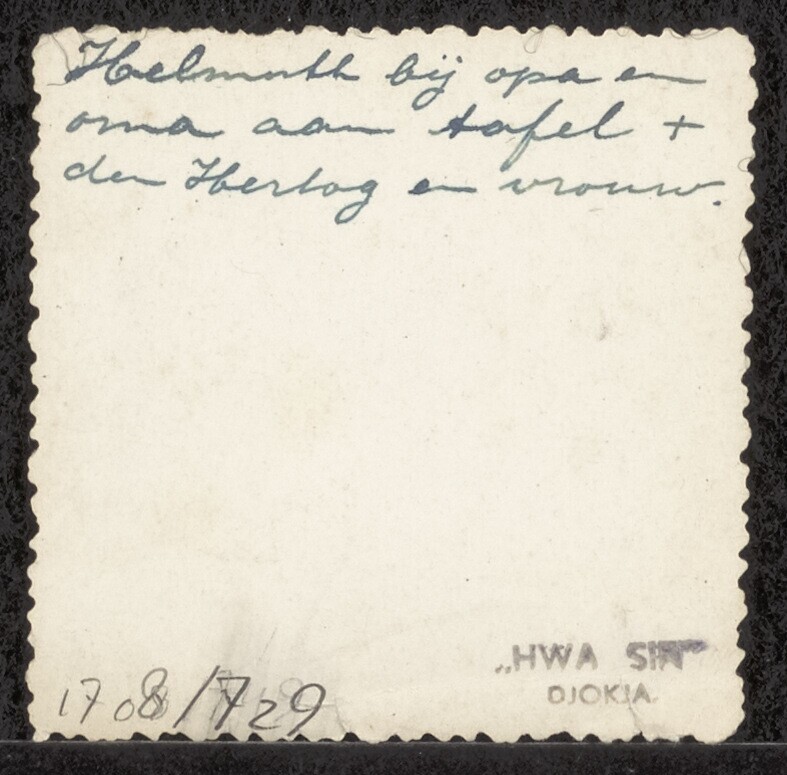 Helmuth bij opa en
oma aan tafel +
den Hertog en vrouw.
1708/729
„HWA SIN"
DJOKJA.